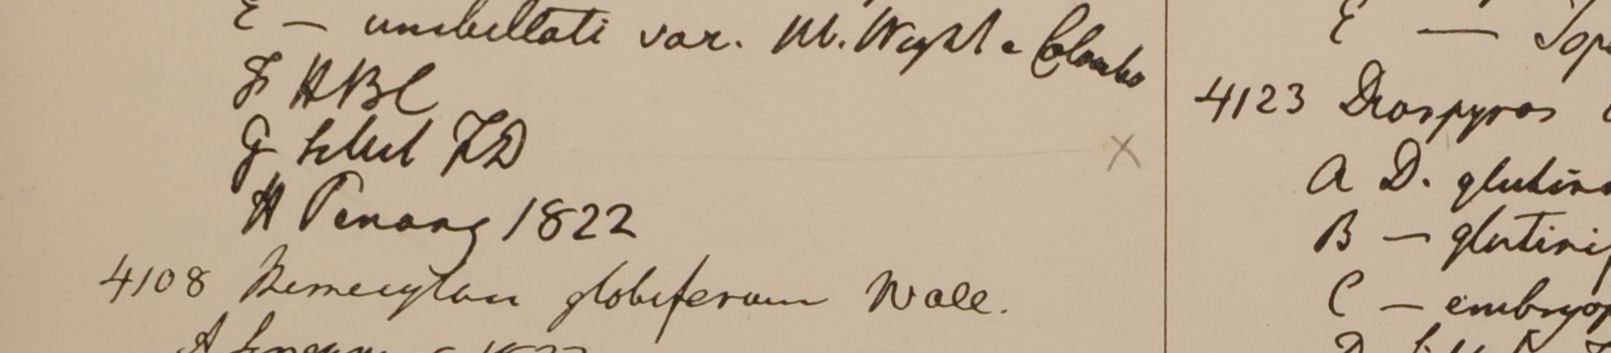 E — umbellati var. W. Wight e Colombo
F HBC
G Hbl FD
H Penang 1822
4108 Memecylon globiferum Wall.
A Singapur 1822
E —
4123 Diospyros
A D. glutin
B — glutini
C — embryop
D